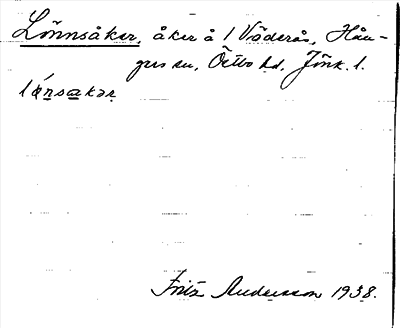 Lönnsåker, åker å 1 Väderås, Hån-
ger sn, Östbo hd. Jönk. l.
lǿnsakər
Fritz Andersson 1938.